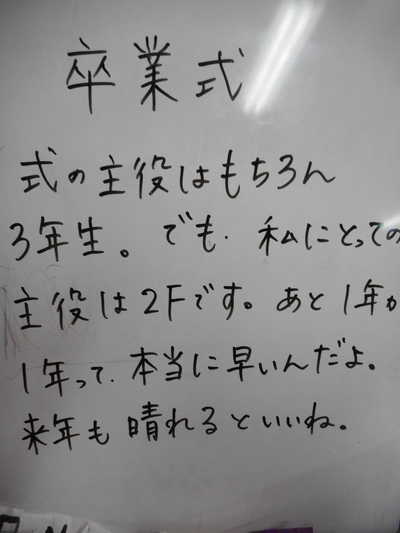 卒業式
式の主役はもちろん
3年生。でも、私にとっての
主役は2Fです。あと1年か
1年って、本当に早いんだよ。
来年も晴れるといいね。